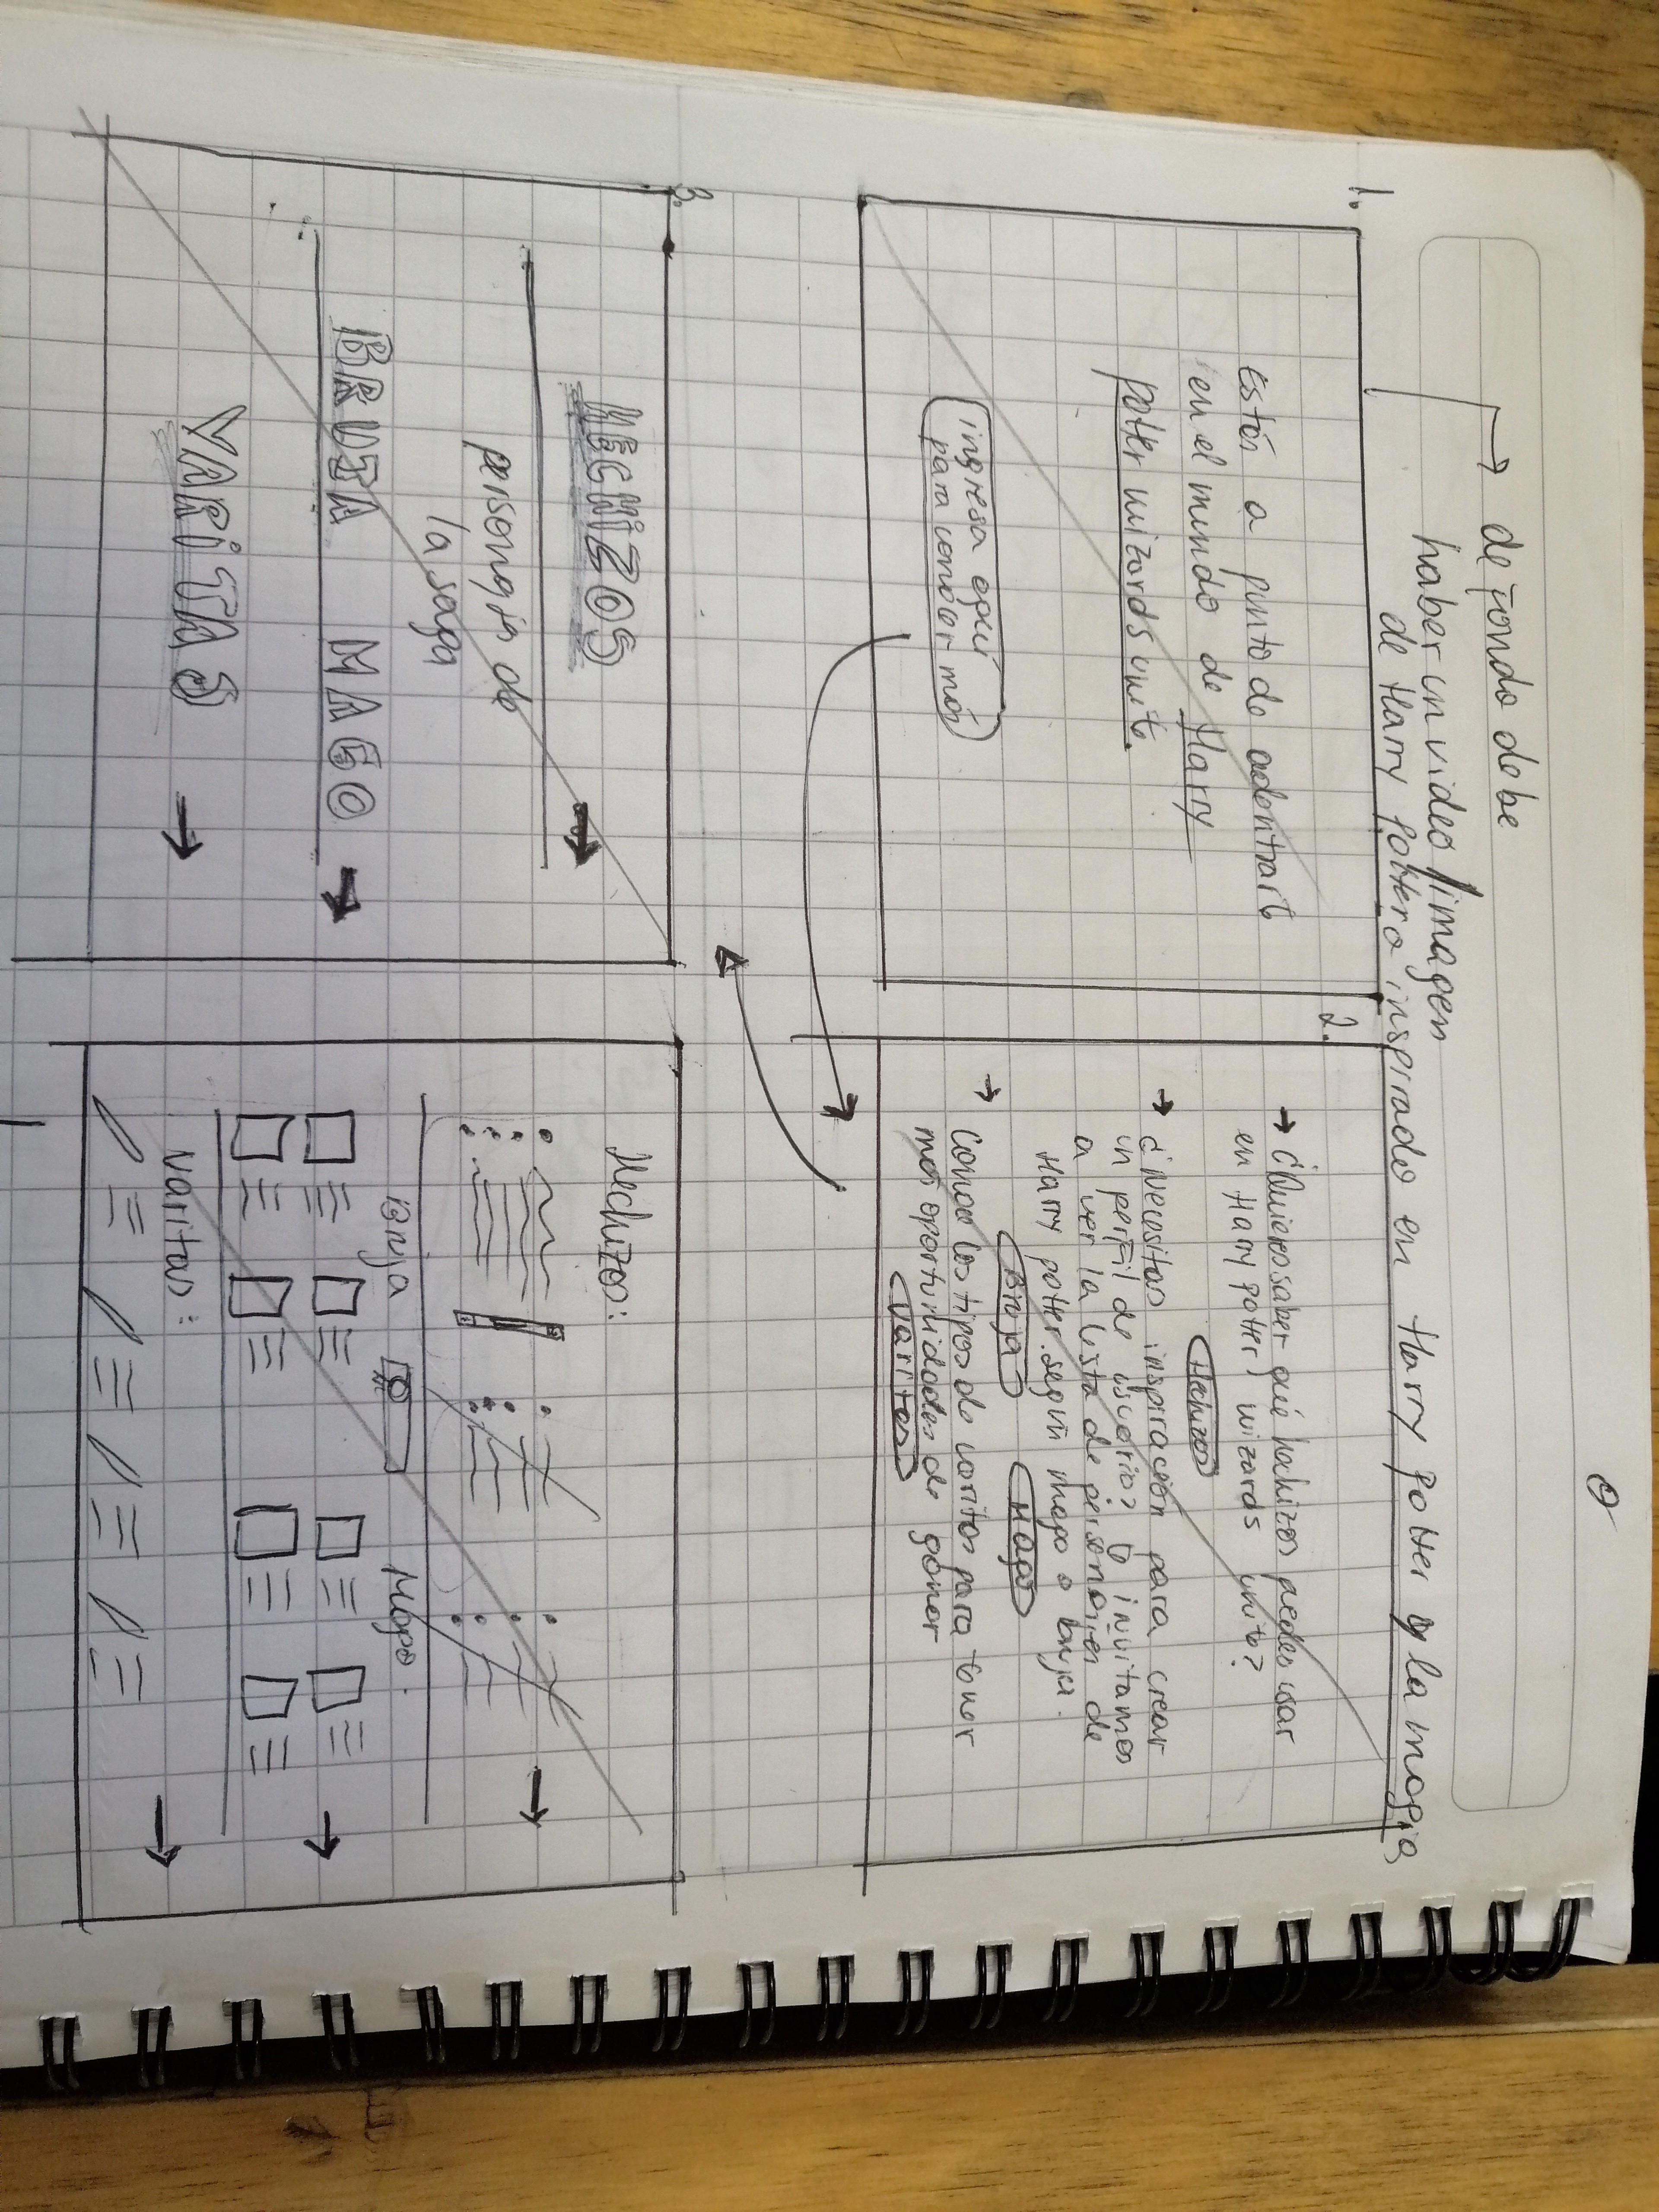 de fondo debe
haber un video /imagen
de Harry Potter o inspirado en Harry Potter y la magia
1.
Estás a punto de adentrarte
en el mundo de Harry
Potter wizards unite.
ingresa aquí
para conocer más
2.
→ ¿Quieres saber qué hechizos puedes usar
en Harry Potter wizards unite?
Hechizos
→ ¿Necesitas inspiración para crear
un perfil de usuario? te invitamos
a ver la lista de personajes de
Harry potter según mago o bruja.
Bruja Mago
→
Conoce los tipos de varitas para tener
más oportunidades de ganar
varitas
3.
HECHIZOS →
personajes de
la saga
BRUJA MAGO →
VARITAS →
Hechizos:
→
Bruja Mago
→
Varitas:
→